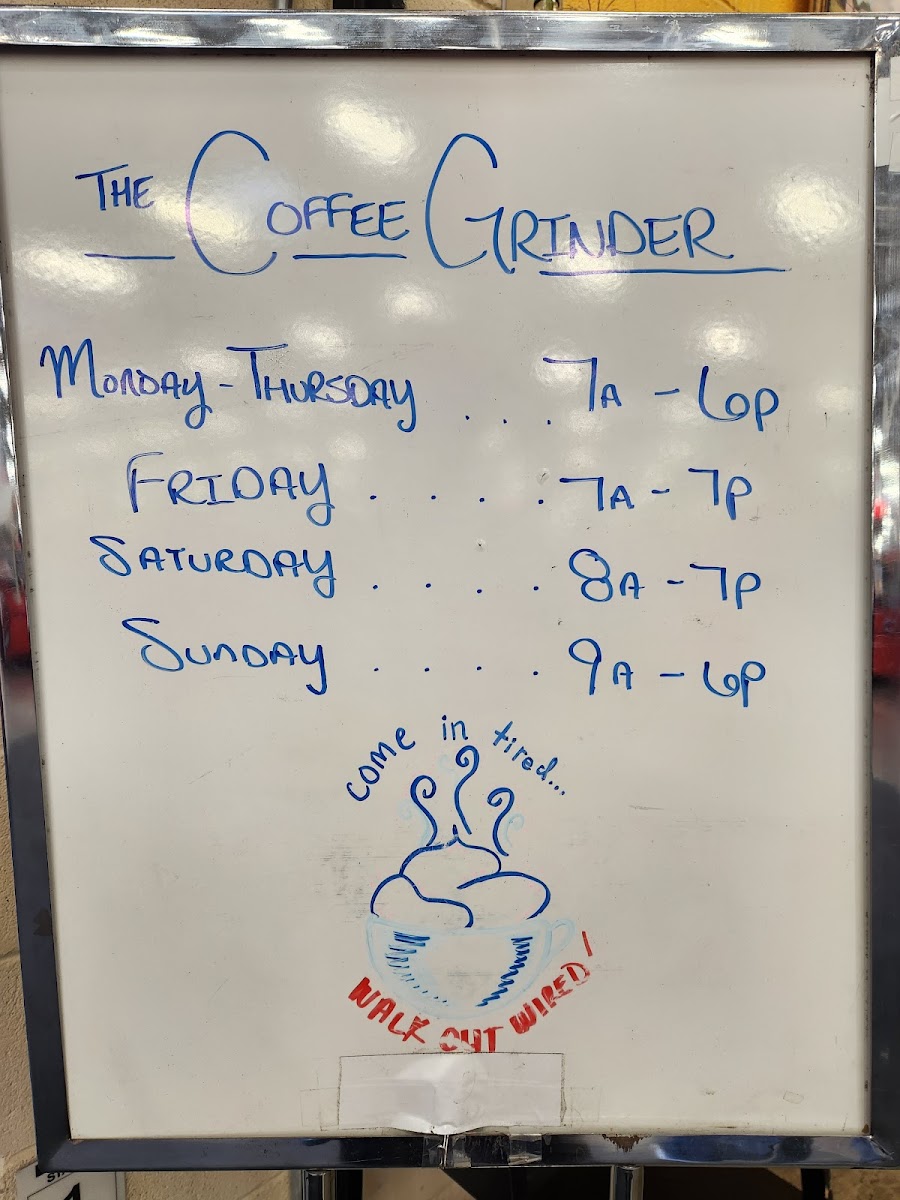 THE COFFEE GRINDER
MONDAY - THURSDAY .... 7A - 6P
FRIDAY .... 7A - 7P
SATURDAY .... 8A - 7P
SUNDAY .... 9A - 6P
come in tired...
WALK OUT WIRED!